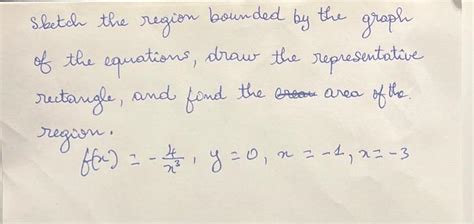 Sketch the region bounded by the graph
of the equations, draw the representative
rectangle, and find the area of the
region.
f(x) = -4/x³, y = 0, x = -1, x = -3